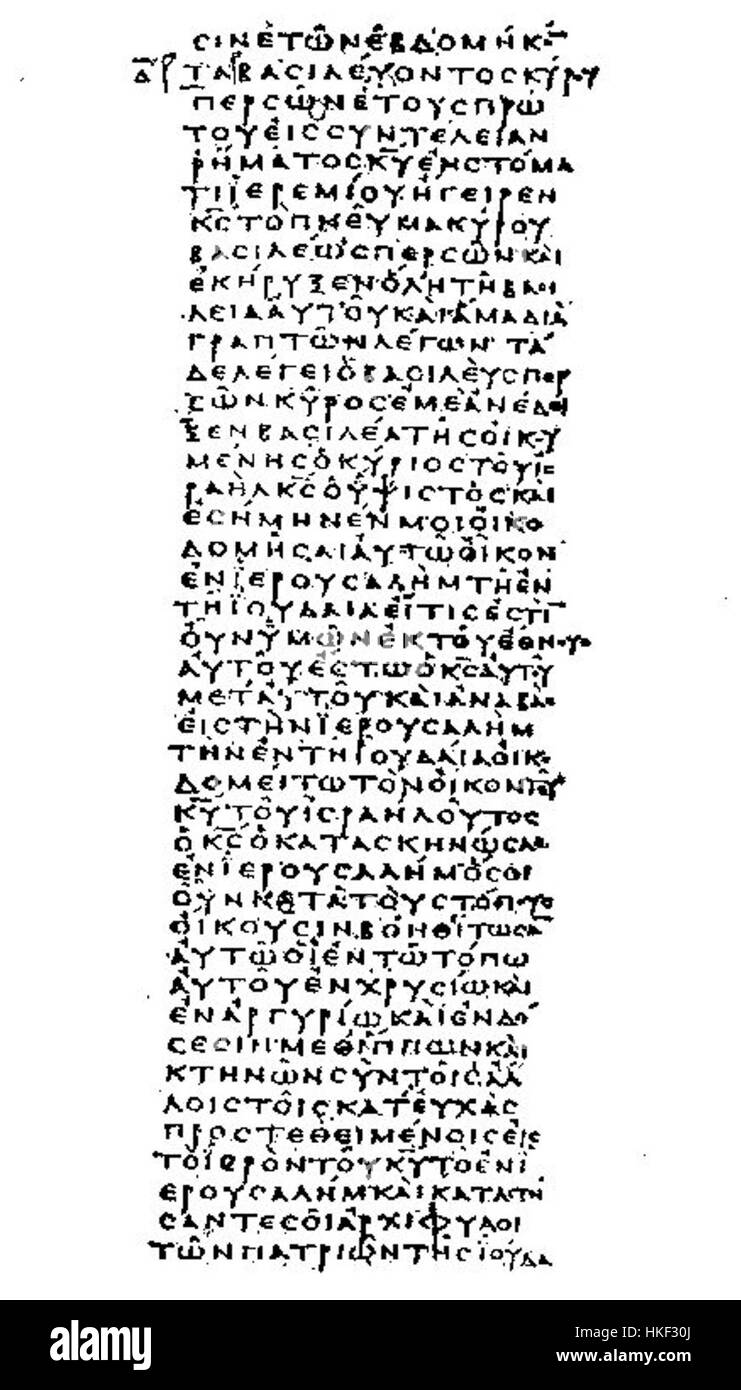 ϹΙΝΕΤΩΝΕΒΔΟΜΗΚΟ̅
Δ ΤΑΒΑϹΙΛΕΥΟΝΤΟϹΚΥΡΟΥ
ΠΕΡϹΩΝΕΤΟΥϹΠΡΩ
ΤΟΥΕΙϹϹΥΝΤΕΛΕΙΑΝ
ΡΗΜΑΤΟϹΚ̅Υ̅ΕΝϹΤΟΜΑ
ΤΙΙΕΡΕΜΙΟΥΗΓΕΙΡΕΝ
Κ̅Ϲ̅ΤΟΠΝΕΥΜΑΚΥΡΟΥ
ΒΑϹΙΛΕΩϹΠΕΡϹΩΝΚΑΙ
ΕΚΗΡΥΞΕΝΟΛΗΤΗΒΑϹΙ
ΛΕΙΑΑΥΤΟΥΚΑΙΑΜΑΔΙΑ
ΓΡΑΠΤΩΝΛΕΓΩΝΤΑ
ΔΕΛΕΓΕΙΟΒΑϹΙΛΕΥϹΠΕΡ
ϹΩΝΚΥΡΟϹΕΜΕΑΝΕΔΕΙ
ΞΕΝΒΑϹΙΛΕΑΤΗϹΟΙΚΟΥ
ΜΕΝΗϹΟΚΥΡΙΟϹΤΟΥΙϹ
ΡΑΗΛΚ̅Ϲ̅ΟΥΨΙϹΤΟϹΚΑΙ
ΕϹΗΜΗΝΕΝΜΟΙΟΙΚΟ
ΔΟΜΗϹΑΙΑΥΤΩΟΙΚΟΝ
ΕΝΙΕΡΟΥϹΑΛΗΜΤΗΕΝ
ΤΗΙΟΥΔΑΙΑΕΙΤΙϹΕϹΤΙ̅
ΟΥΝΥΜΩΝΕΚΤΟΥΕΘΝΟΥϹ
ΑΥΤΟΥΕϹΤΩΟΚ̅Ϲ̅ΑΥΤΟΥ
ΜΕΤΑΥΤΟΥΚΑΙΑΝΑΒΑϹ
ΕΙϹΤΗΝΪΕΡΟΥϹΑΛΗΜ
ΤΗΝΕΝΤΗΙΟΥΔΑΙΑΟΙΚΟ
ΔΟΜΕΙΤΩΤΟΝΟΙΚΟΝΤΟΥ
Κ̅Υ̅ΤΟΥΙϹΡΑΗΛΟΥΤΟϹ
ΟΚ̅Ϲ̅ΟΚΑΤΑϹΚΗΝΩϹΑϹ
ΕΝΙΕΡΟΥϹΑΛΗΜΟϹΟΙ
ΟΥΝΚΑΤΑΤΟΥϹΤΟΠΟΥϹ
ΟΙΚΟΥϹΙΝΒΟΗΘΙΤΩϹΑ̅
ΑΥΤΩΟΙΕΝΤΩΤΟΠΩ
ΑΥΤΟΥΕΝΧΡΥϹΙΩΚΑΙ
ΕΝΑΡΓΥΡΙΩΚΑΙΕΝΔΟ
ϹΕϹΙΝΜΕΘΙΠΠΩΝΚΑΙ
ΚΤΗΝΩΝϹΥΝΤΟΙϹΑΛ
ΛΟΙϹΤΟΙϹΚΑΤΕΥΧΑϹ
ΠΡΟϹΤΕΘΕΙΜΕΝΟΙϹΕΙϹ
ΤΟΙΕΡΟΝΤΟΥΚ̅Υ̅ΤΟΕΝΙ
ΕΡΟΥϹΑΛΗΜΚΑΙΚΑΤΑϹΤΗ
ϹΑΝΤΕϹΟΙΑΡΧΙΦΥΛΟΙ
ΤΩΝΠΑΤΡΙΩΝΤΗϹΙΟΥΔΑ
alamy
alamy
Image ID: HKF30J
www.alamy.com